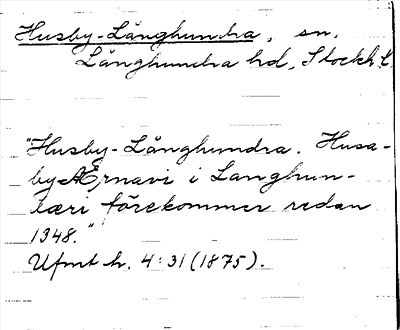 Husby-Långhundra, sn.
Långhundra hd, Stockh.l.
"Husby-Långhundra. Husa-
by Ærnavi i Langhun-
læri förekommer redan
1348."
Ufmt h. 4:31 (1875).